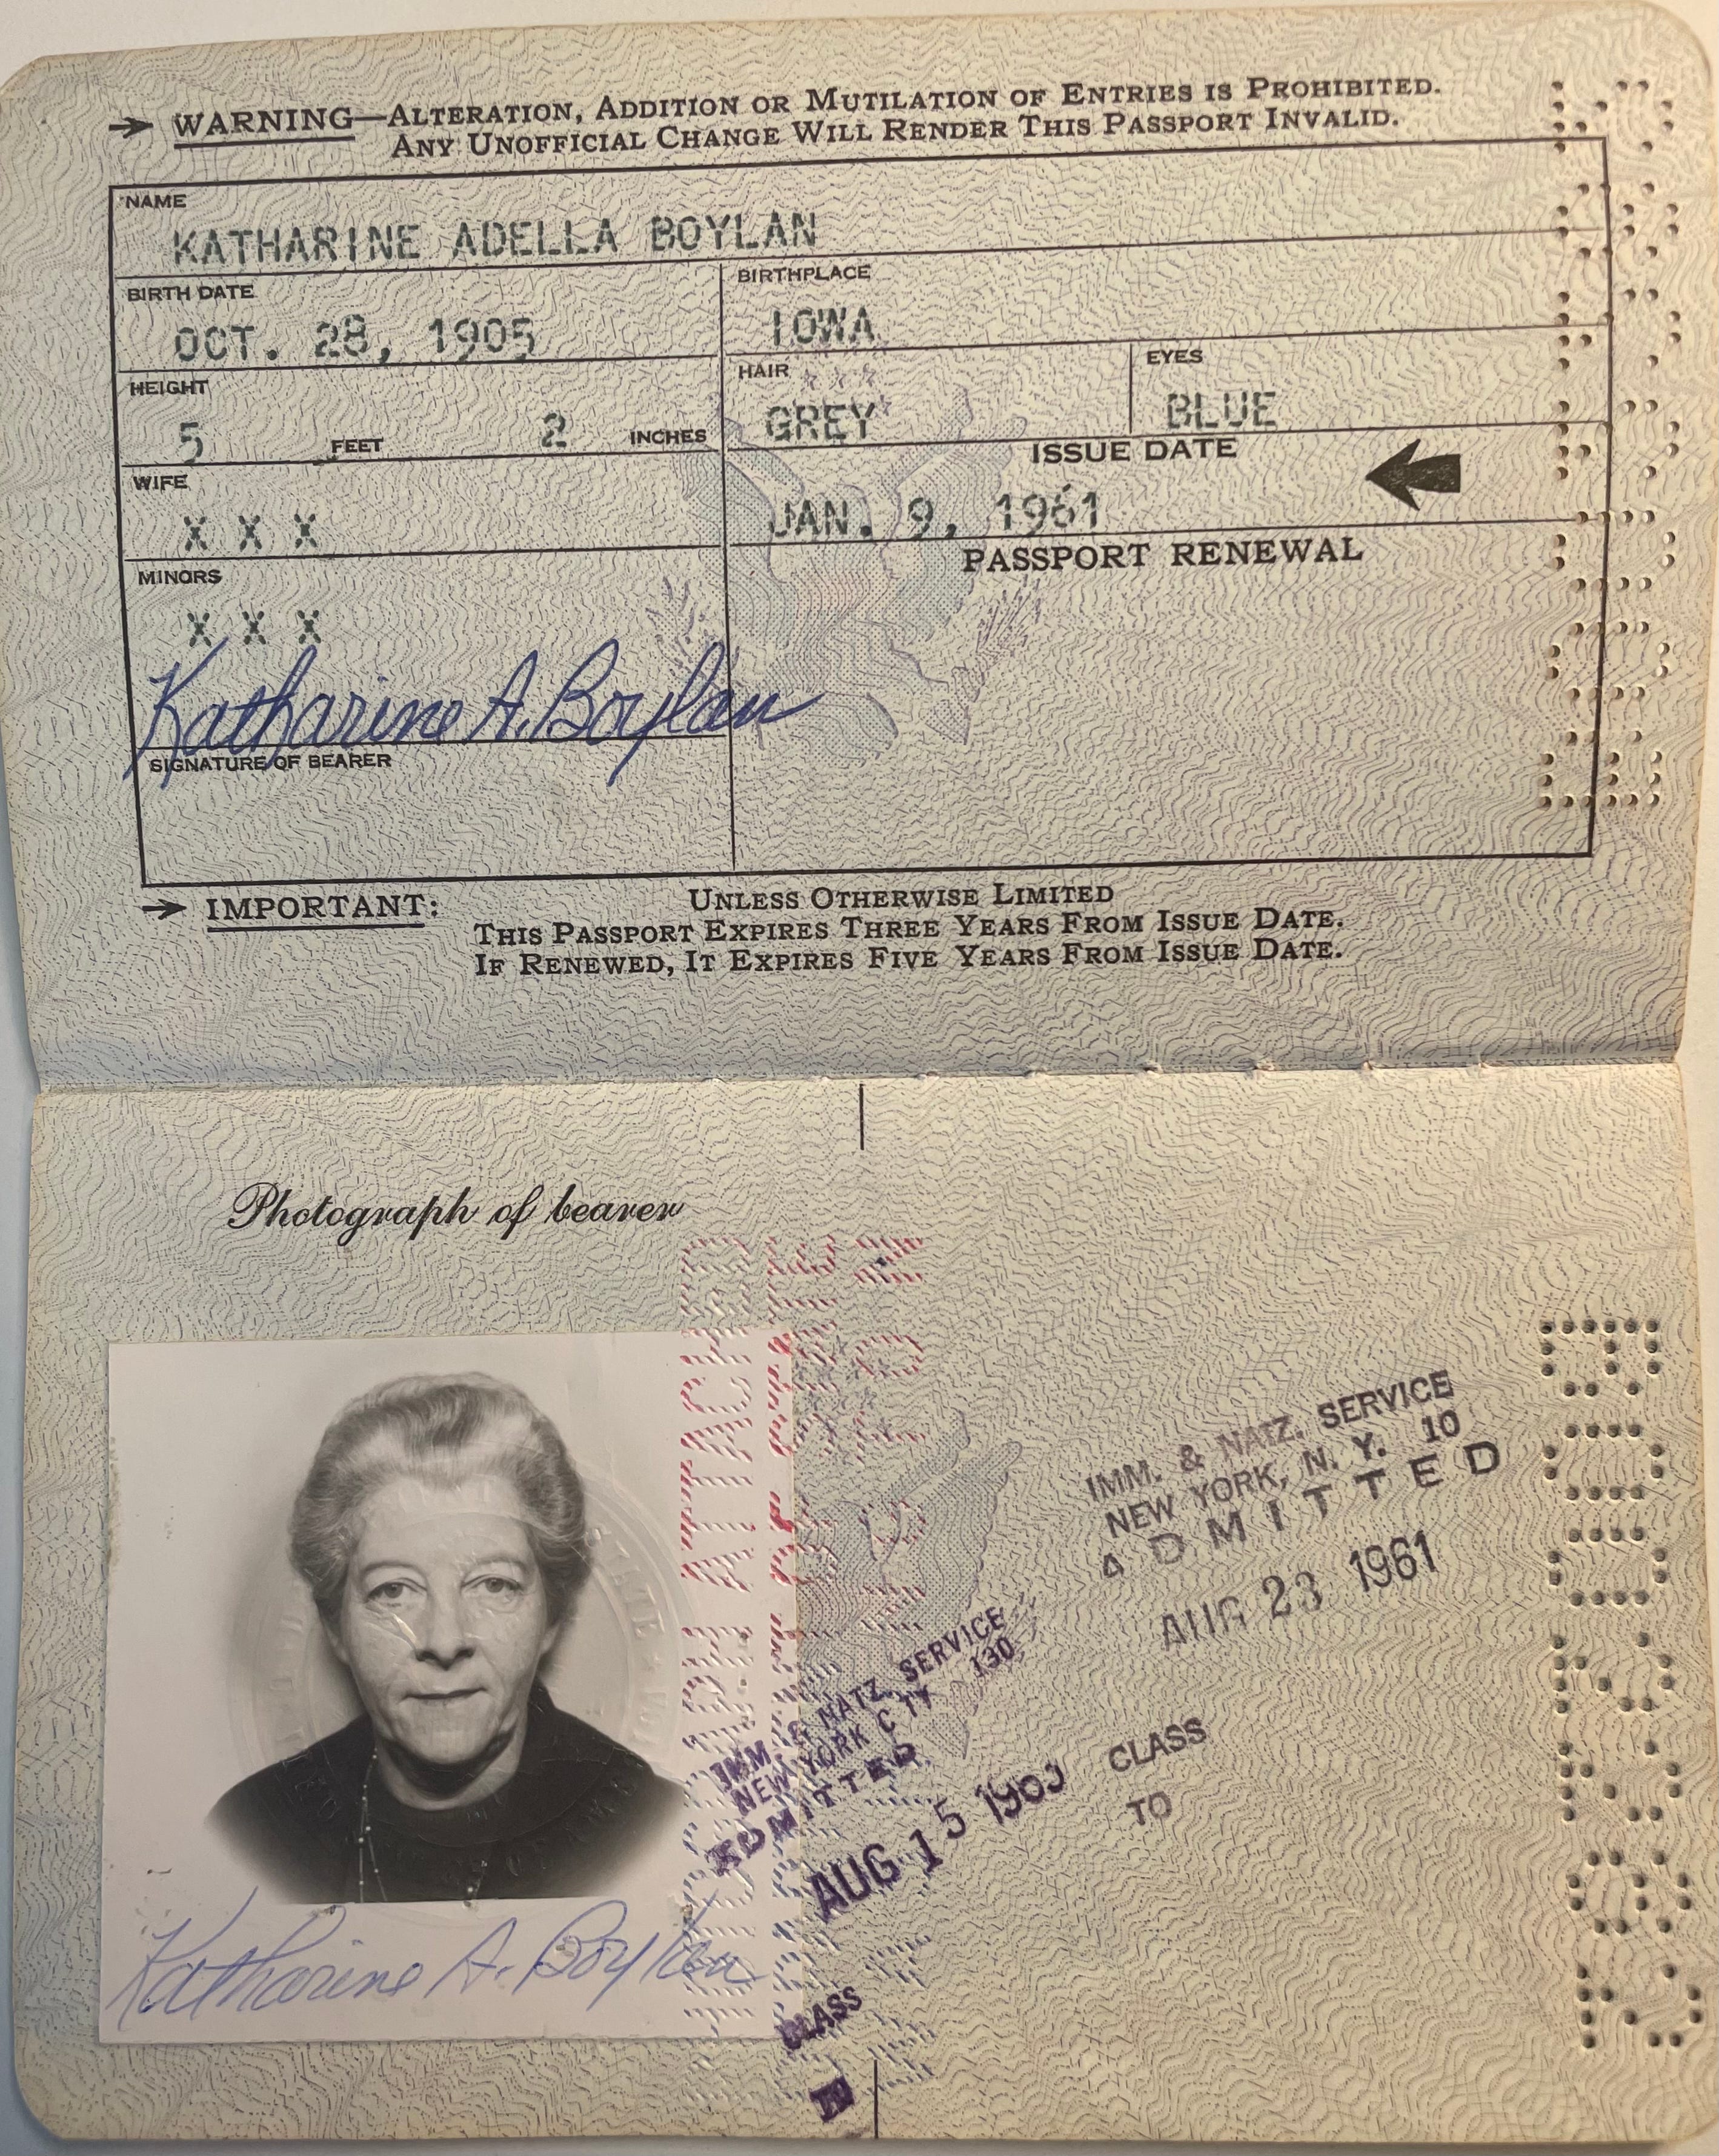 → WARNING—ALTERATION, ADDITION OR MUTILATION OF ENTRIES IS PROHIBITED.
ANY UNOFFICIAL CHANGE WILL RENDER THIS PASSPORT INVALID.
NAME
KATHARINE ADELLA BOYLAN
BIRTH DATE
OCT. 28, 1905
BIRTHPLACE
IOWA
HEIGHT
5 FEET 2 INCHES
HAIR
* * *
GREY
EYES
BLUE
WIFE
X X X
ISSUE DATE
JAN. 9, 1961
MINORS
X X X
PASSPORT RENEWAL
Katharine A. Boylan
SIGNATURE OF BEARER
→ IMPORTANT: UNLESS OTHERWISE LIMITED
THIS PASSPORT EXPIRES THREE YEARS FROM ISSUE DATE.
IF RENEWED, IT EXPIRES FIVE YEARS FROM ISSUE DATE.
Photograph of bearer
ATTACHED
IMM. & NATZ. SERVICE
NEW YORK, N. Y. 10
ADMITTED
AUG 23 1961
CLASS
TO
IMM. & NATZ. SERVICE
NEW YORK CTY 130
ADMITTED
AUG 15 1963
CLASS
TO
Katharine A. Boylan